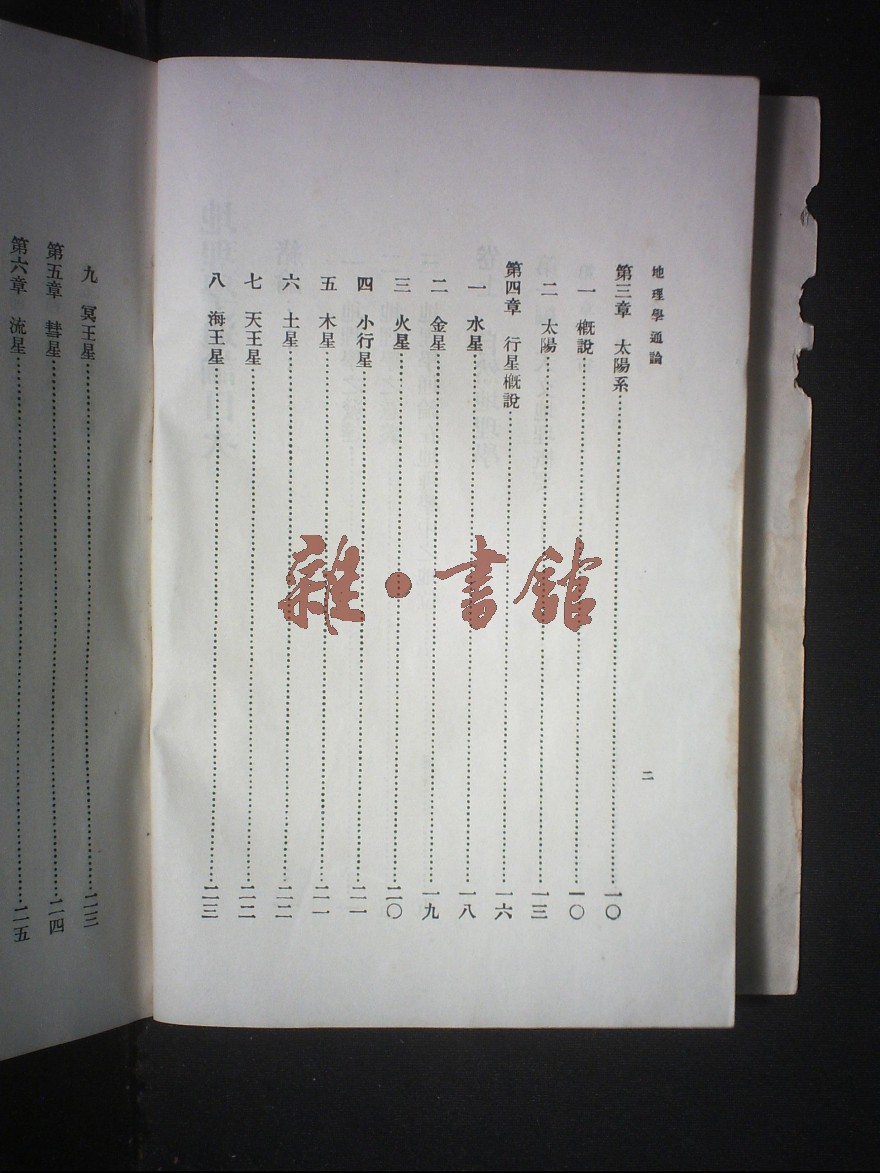 地理學通論
二
第三章　太陽系……一〇
一　概說……一〇
二　太陽……一三
第四章　行星概說……一六
一　水星……一八
二　金星……一九
三　火星……二〇
四　小行星……二一
五　木星……二一
六　土星……二二
七　天王星……二二
八　海王星……二三
九　冥王星……二三
第五章　彗星……二四
第六章　流星……二五
雜・書館